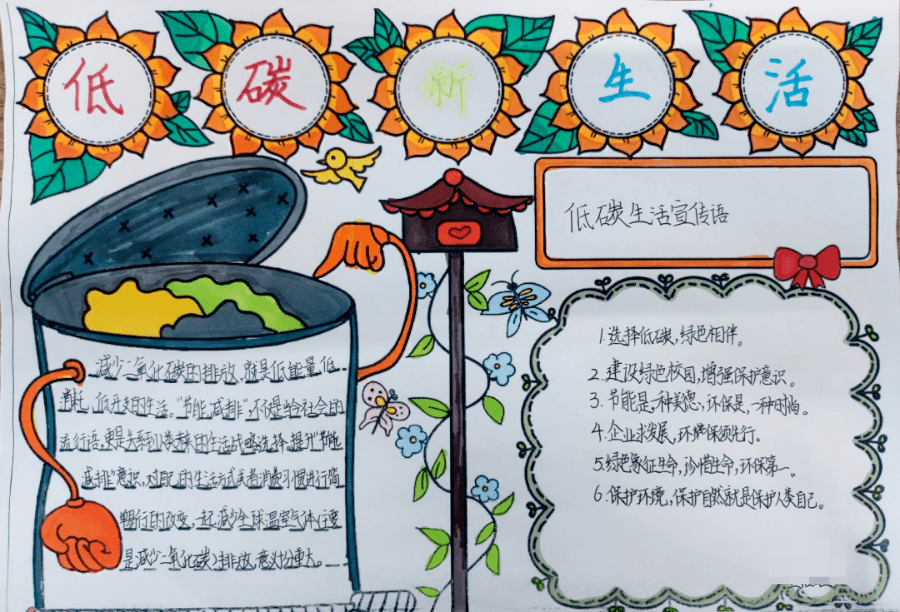 低碳新生活
减少二氧化碳的排放，就是低能量、低
消耗、低开支的生活。“节能减排”，不仅是当今社会的
流行语，更是关系到人类未来的生活战略选择，提升“节能
减排”意识，对自己的生活方式或者消费习惯进行简
易行的改变，一起减少全球温室气体（主要
是减少二氧化碳）排放，意义十分重大。
低碳生活宣传语
1.选择低碳，绿色相伴。
2.建设绿色校园，增强保护意识。
3.节能是一种美德，环保是一种时尚。
4.企业求发展，环保须先行。
5.绿色象征生命，珍惜生命，环保第一。
6.保护环境，保护自然就是保护人类自己。